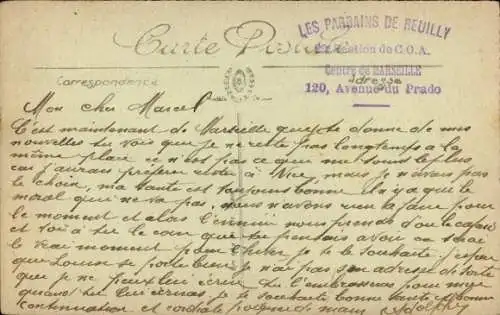 LES PARRAINS DE REUILLY
Section de C.O.A.
Centre de MARSEILLE
120, Avenue du Prado
Carte Postale
Correspondance
Adresse
Mon cher Marcel
C'est maintenant de Marseille que je te donne de mes
nouvelles tu vois que je ne reste pas longtemps a la
même place ce n'est pas ce que me le plus
car j'aurais préféré rester à Nice, mais je n'avais pas
le choix, ma santé est toujours bonne il n'y a que le
moral que ne va pas, nous n'avons rien a faire pour
le moment et alors l'ennui nous prends
et toi a tu le que tu pensais avoir
le vrai moment pour l'hiver je te le souhaite j'espère
que Louise se porte bien je n'ai pas son adresse de sorte
que je ne peux lui écrire tu l'embrasseras pour moi
quand tu lui écriras je te souhaite bonne santé bonne
continuation et cordiale poignée de main Adolphe